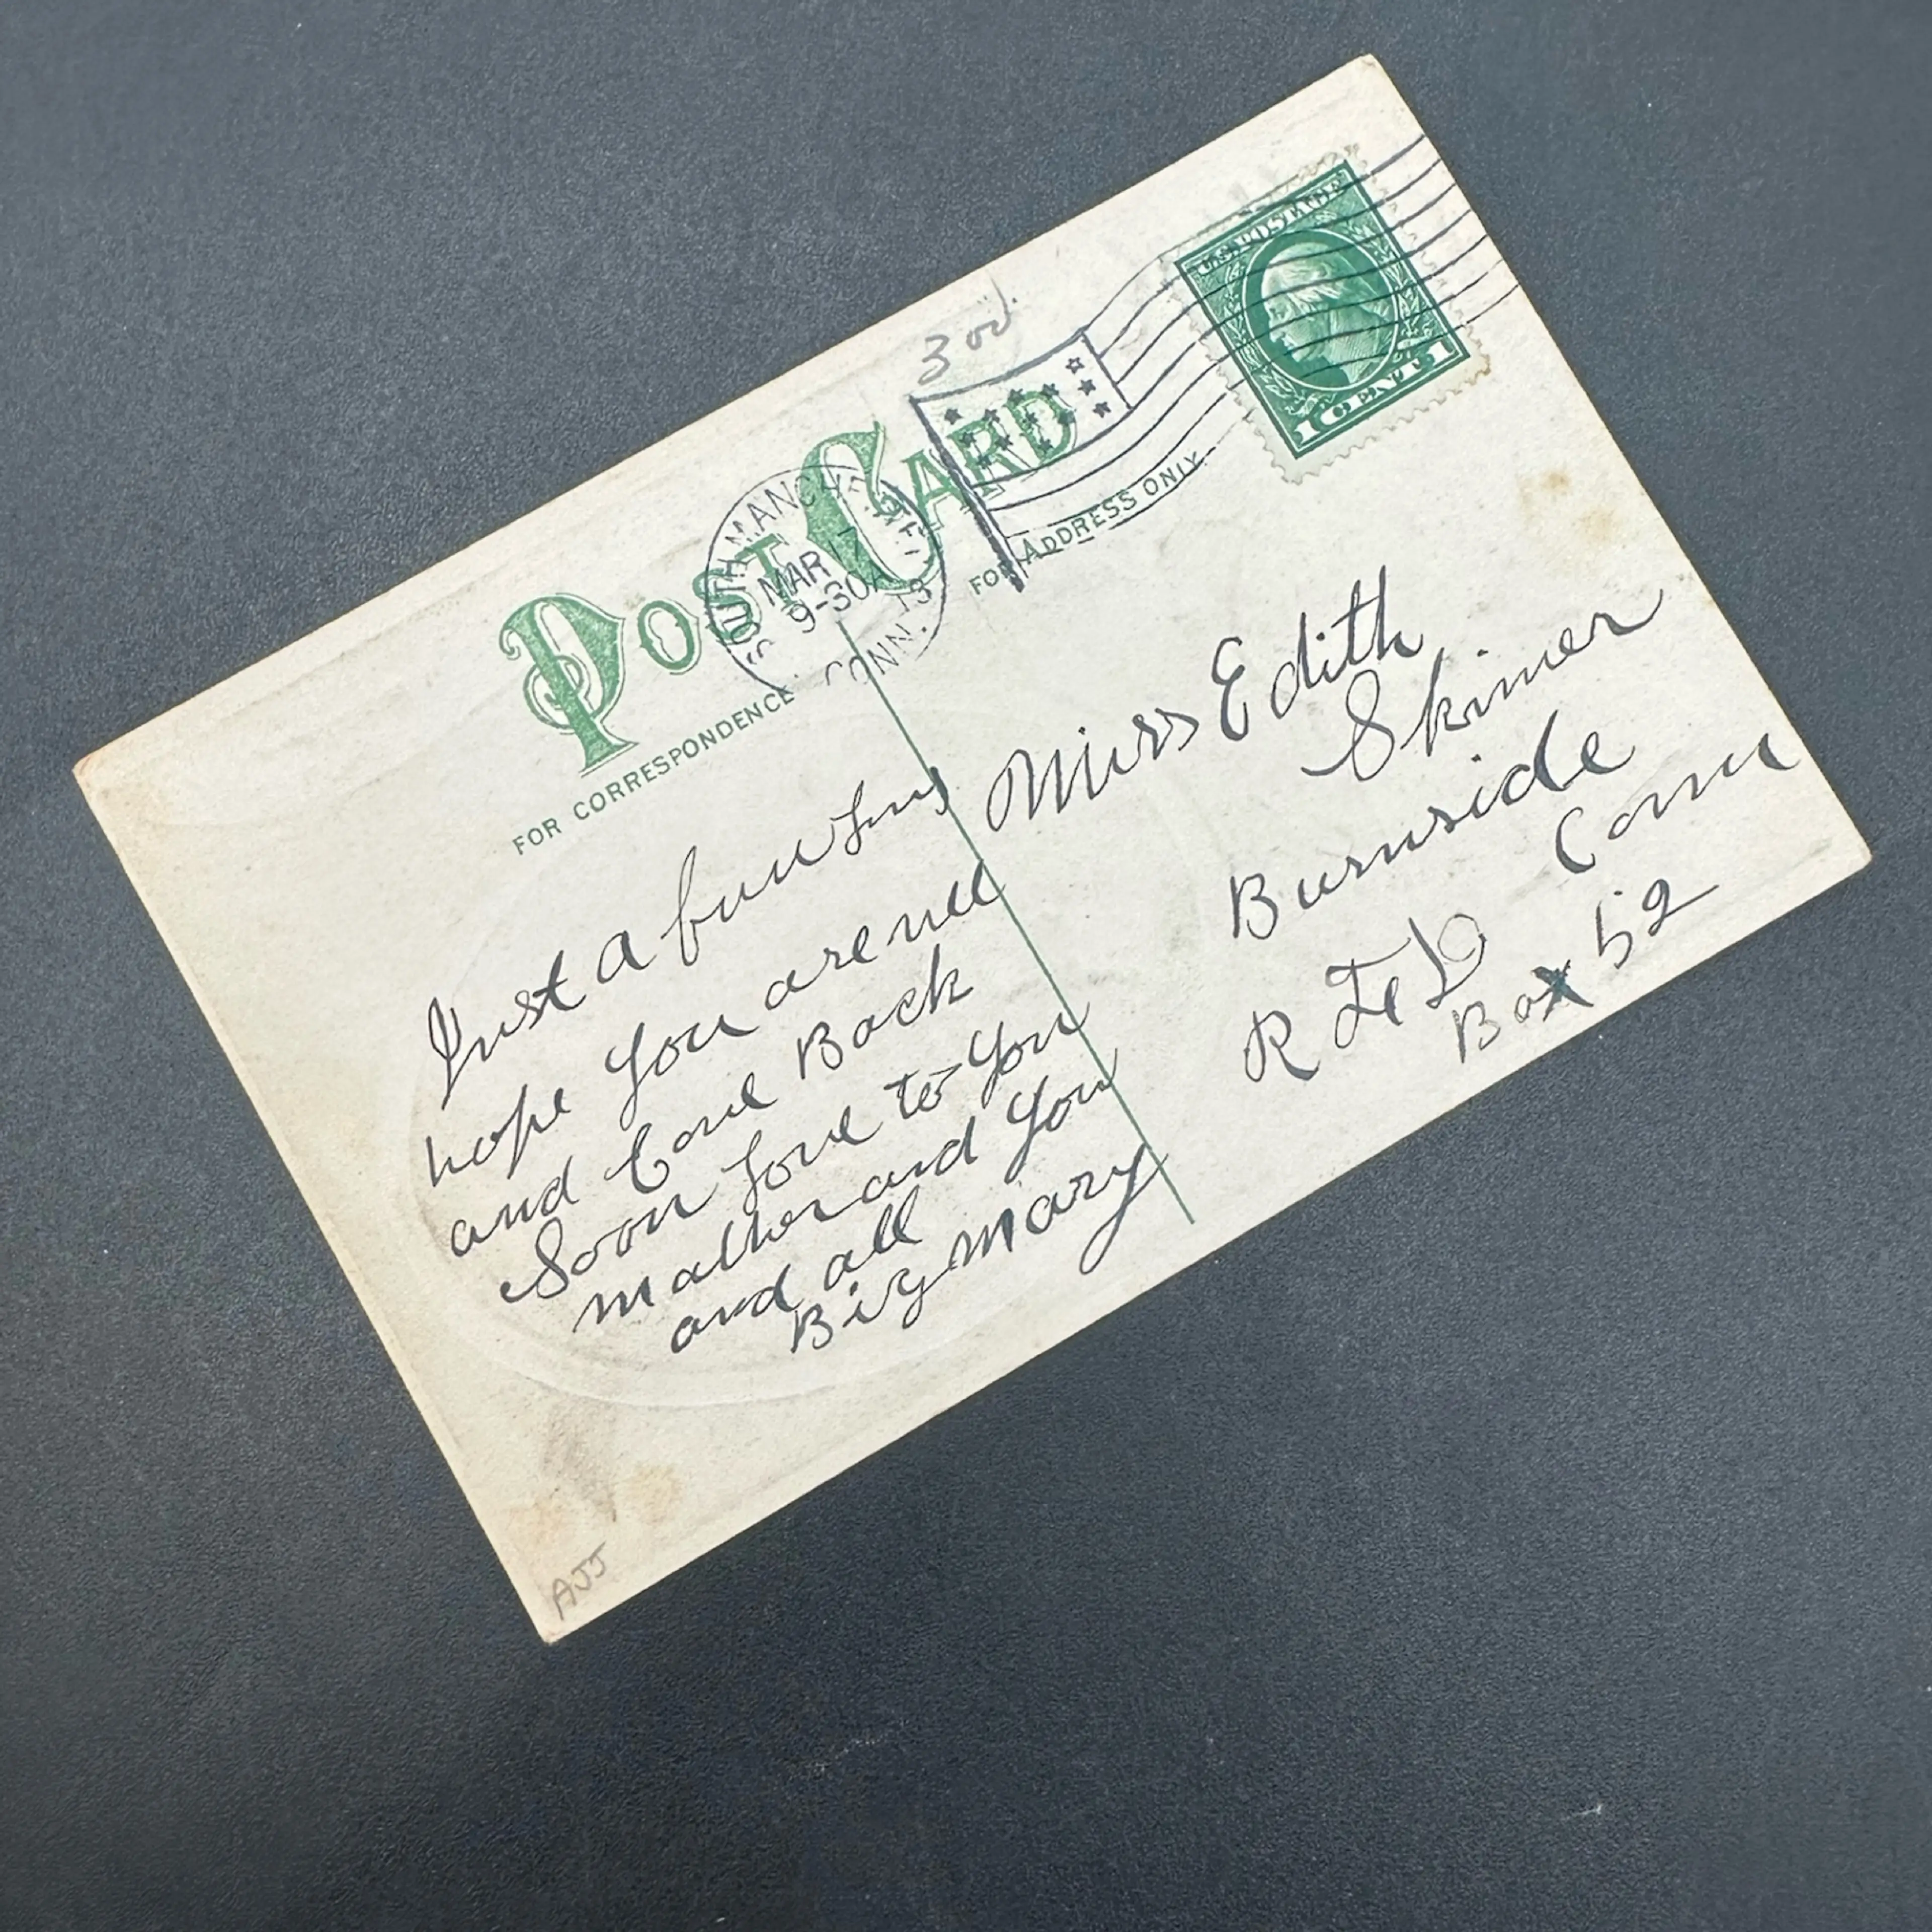 3 od.
POST CARD
SOUTH MANCHESTER
MAR 17
9-30A
13
CONN.
U.S. POSTAGE
1 CENT 1
FOR CORRESPONDENCE.
FOR ADDRESS ONLY.
Just a fuw
hope you are well
and Come Back
Soon love to you
mather and you
and all
Big Mary
Miss Edith
Skinner
Burnside
Conn
R F D
Box 52
AJJ